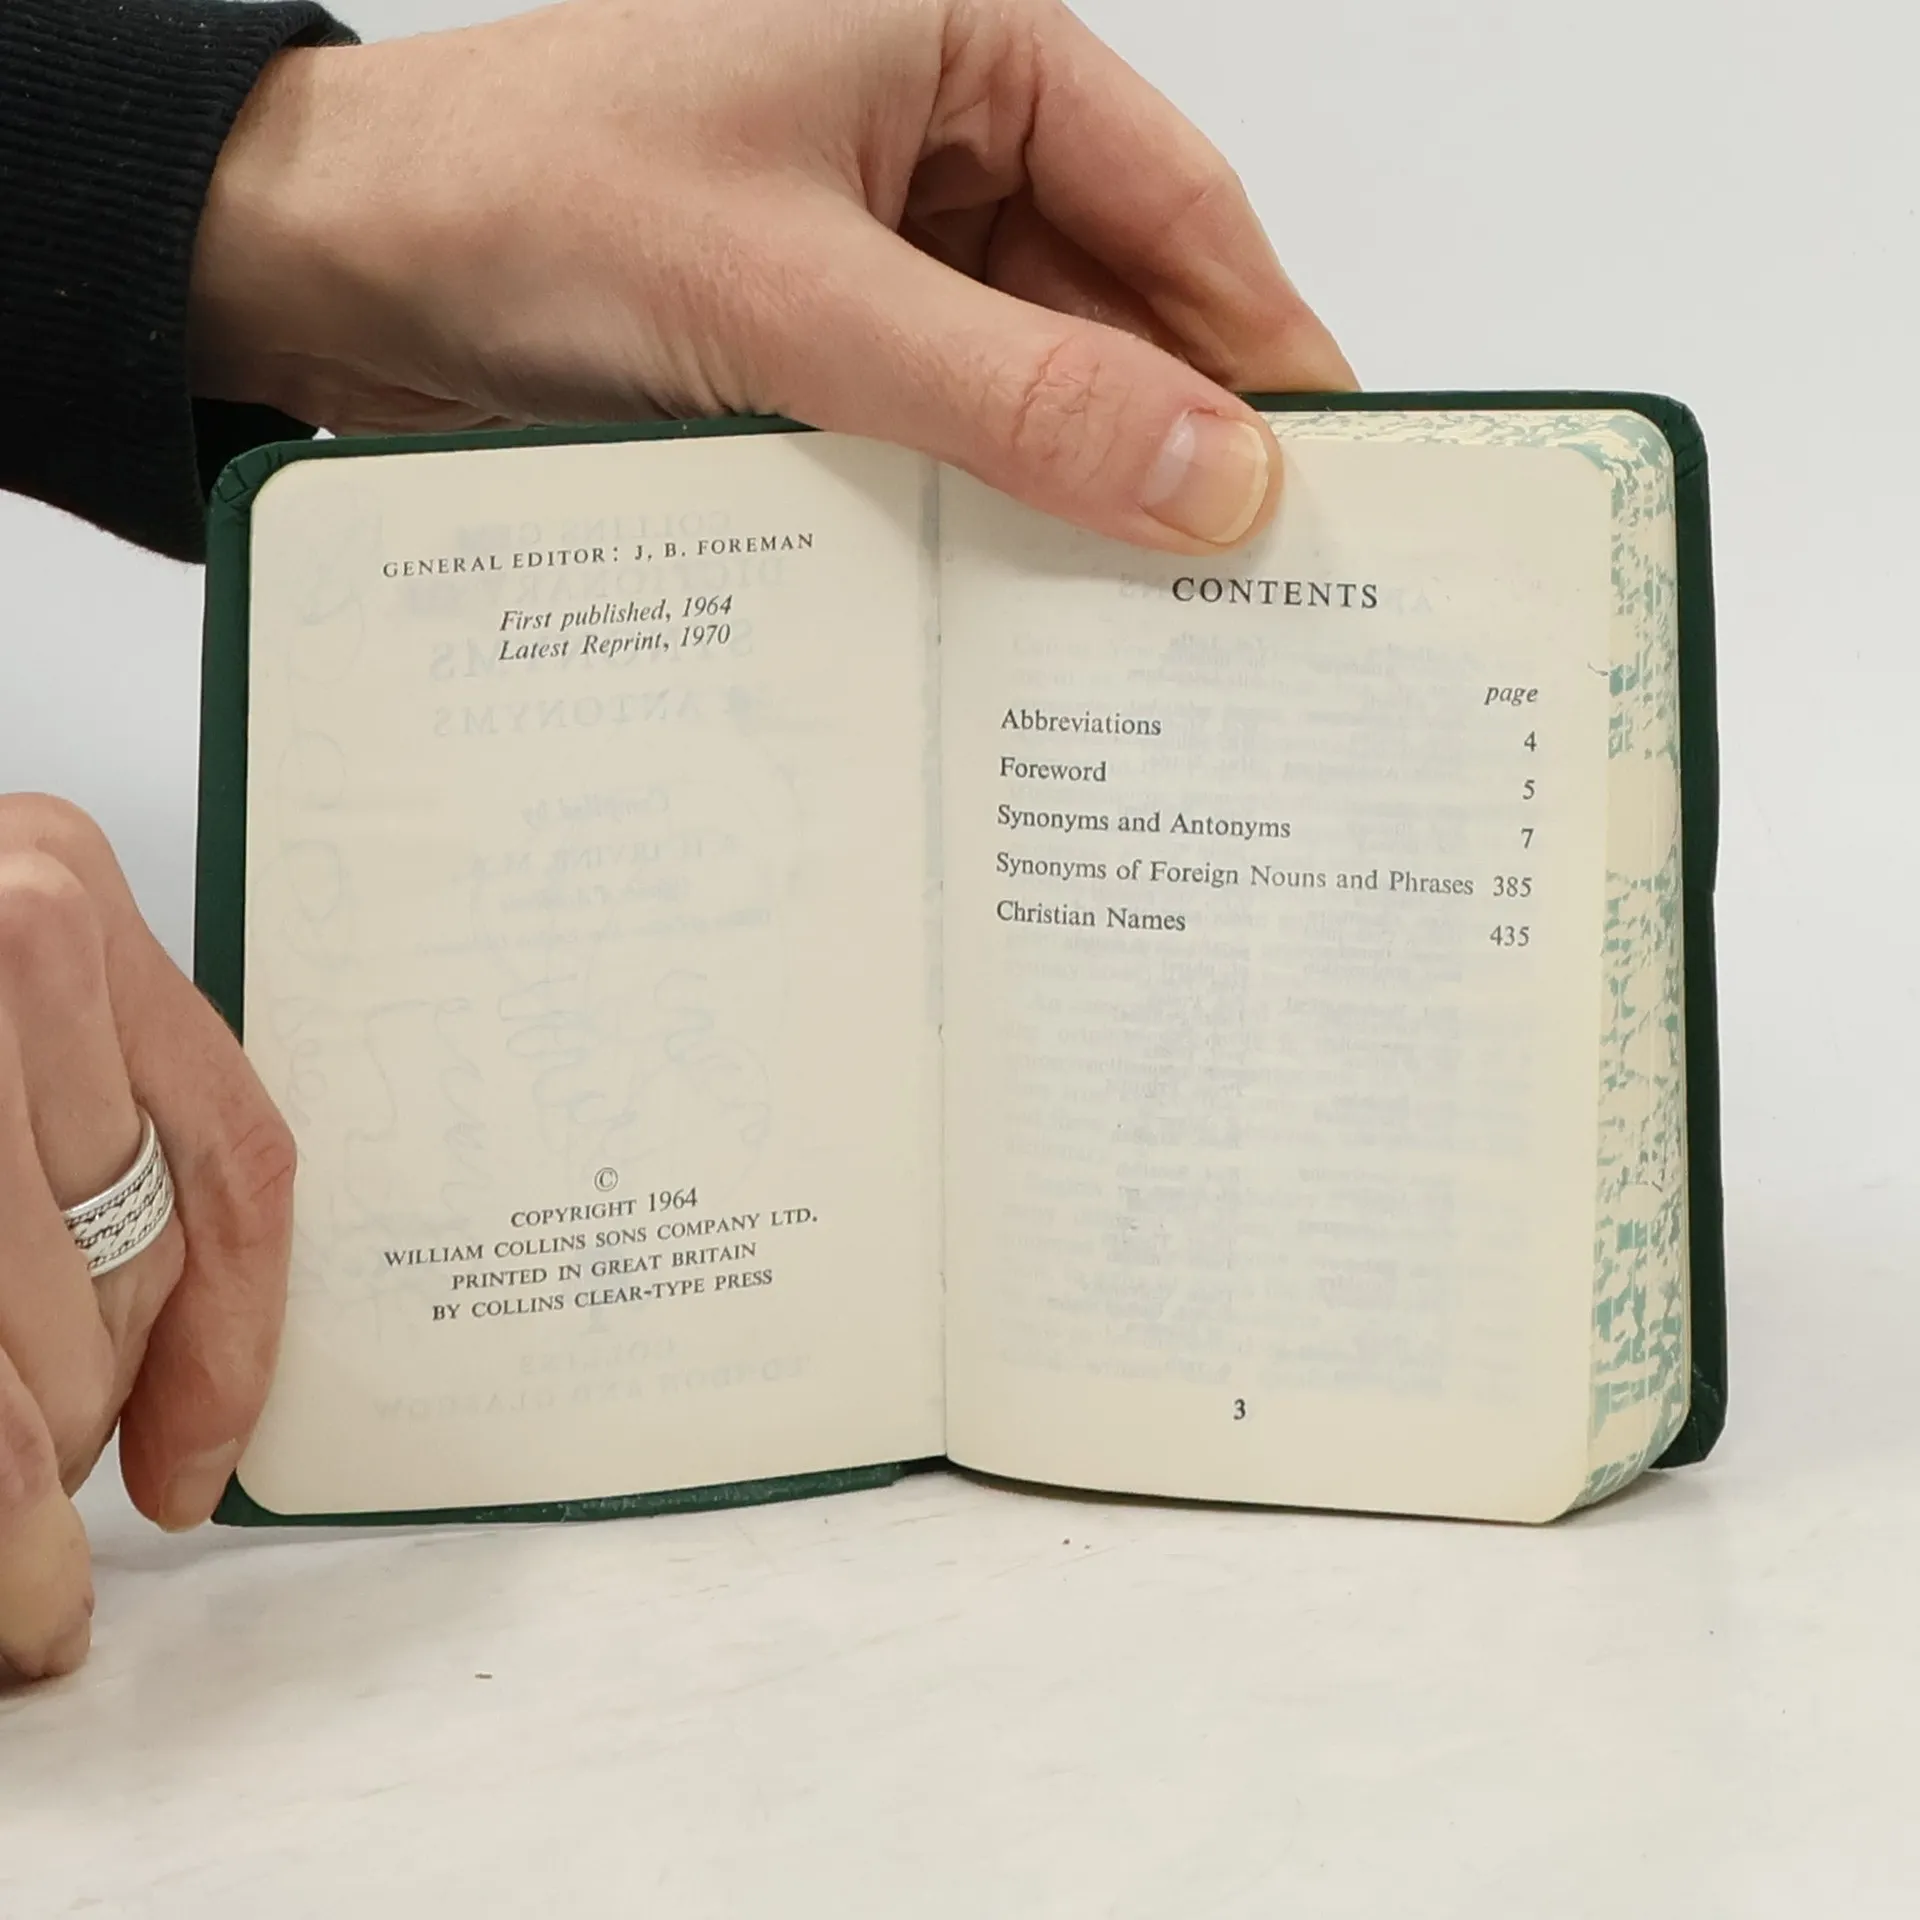 GENERAL EDITOR: J. B. FOREMAN
First published, 1964
Latest Reprint, 1970
©
COPYRIGHT 1964
WILLIAM COLLINS SONS COMPANY LTD.
PRINTED IN GREAT BRITAIN
BY COLLINS CLEAR-TYPE PRESS
CONTENTS
page
Abbreviations 4
Foreword 5
Synonyms and Antonyms 7
Synonyms of Foreign Nouns and Phrases 385
Christian Names 435
3